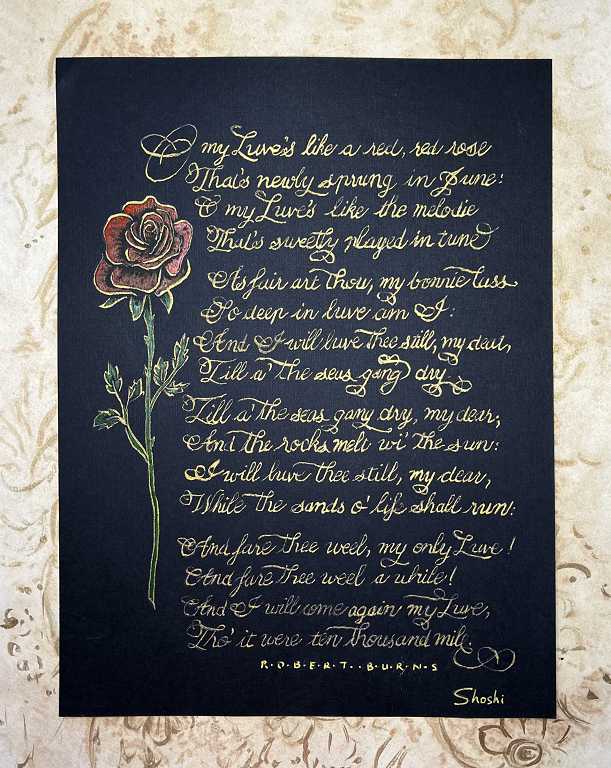 O my Luve's like a red, red rose
That's newly sprung in June:
O my Luve's like the melodie
That's sweetly played in tune
As fair art thou, my bonnie lass
So deep in luve am I:
And I will luve thee still, my dear,
Till a' the seas gang dry
Till a' the seas gang dry, my dear;
And the rocks melt wi' the sun:
I will luve thee still, my dear,
While the sands o' life shall run:
And fare thee weel, my only Luve!
And fare thee weel a while!
And I will come again my Luve,
Tho' it were ten thousand mile.
R·O·B·E·R·T··B·U·R·N·S
Shoshi